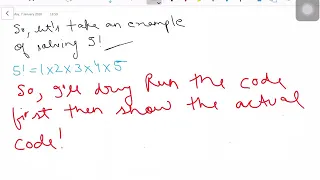 So, let's take an example
of solving 5!
5! = 1x2x3x4x5
So, I'll dry Run the code
first then show the actual
code!